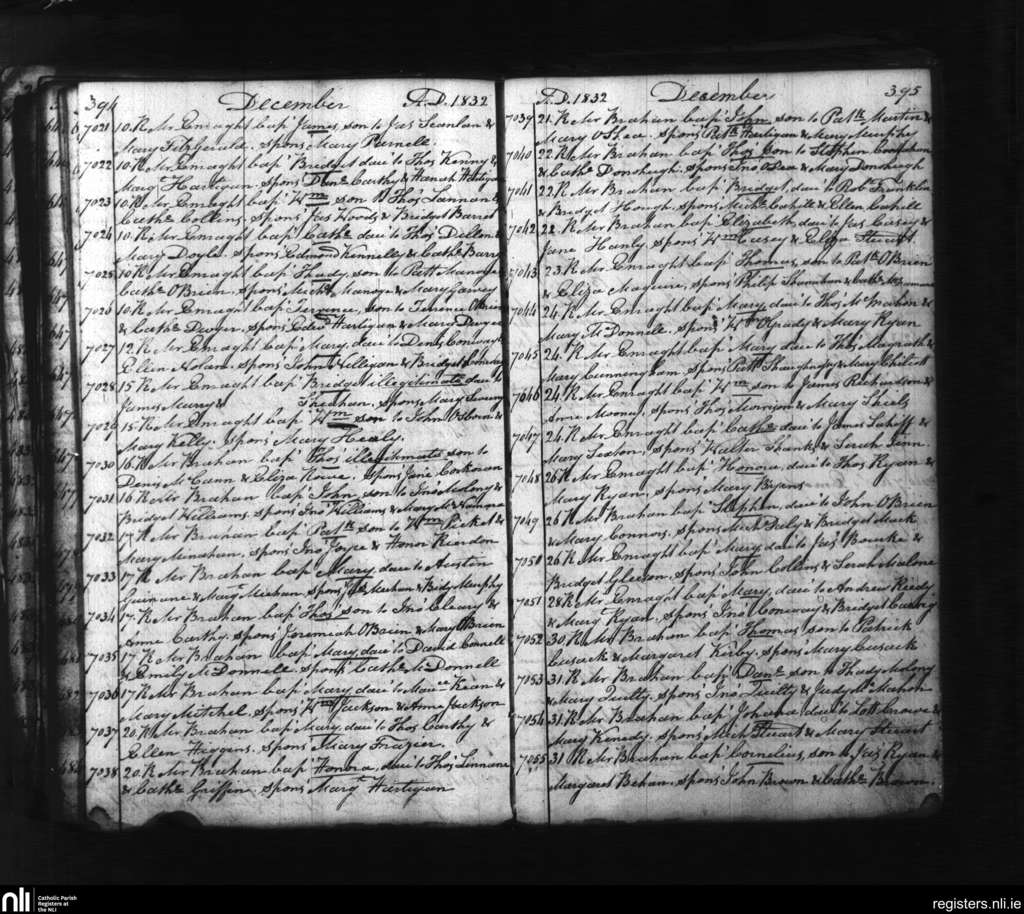 394 December A.D. 1832
7021 10. R Mr Enraght bap' James son to Jas Scanlan &
Mary Fitzgerald. Spons Mary Parnell.
7022 10. R Mr Enraght bap' Bridget dau' to Thos Kenny &
Margt Hartigan. Spons Danl Carthy & Hanah Hartigan
7023 10. R Mr Enraght bap' Wm son to Thos Lannan &
Cathe Collins. Spons Jas Woods & Bridget Barret
7024 10. R Mr Enraght bap' Cathe dau' to Thos Dillon &
Mary Doyle. Spons Edmond Kennelly & Cathe Barry
7025 10. R Mr Enraght bap' Thady son to Patt
Cathe O'Brien. Spons Michl & Mary Garvey
7026 10. R Mr Enraght bap' Terrence, son to Terence O'Brien
& Cathe Dwyer. Spons Edwd Hartigan & Mara Dwyer
7027 12. R Mr Enraght bap' Mary. dau' to Denis Conway &
Ellen Nolan. Spons John & Bridget
7028 15 R Mr Enraght bap' Bridget illegitemate dau' to
James Marry & Sheahan. Spons Mary
7029 15. R Mr Enraght bap' Wm son to John Osborn &
Mary Kelly. Spons Mary Healy.
7030 16. R Mr Brahan bap' Thos illegitemate son to
Denis McCann & Eliza Rowe. Spons Jane Corkoran
7031 16 R Mr Brahan bap' John son to Jno Molony &
Bridget Williams. Spons Jno Williams & Mary McNamara
7032 17 R Mr Brahan bap' Patk son to Wm &
Mary Minahan, Spons Jno Joyce & Honor Riordon
7033 17 R Mr Brahan bap' Mary. dau' to Austin
& Margt Meehan. Spons Meehan & Bidy Murphy
7034 17. R Mr Brahan bap' Thos son to Jno Cleary &
Anne Carthy. Spons Jeremiah O'Brien & Mary O'Brien
7035 17 R Mr Brahan bap' Mary, dau' to David Connell
& Emily McDonnell. Spons Cathe McDonnell
7036 17 R Mr Brahan bap' Mary dau' to Maurce Kean &
Mary Mitchel. Spons Wm Jackson & Anne Jackson
7037 20 R Mr Brahan bap' Mary, dau' to Thos Carthy &
Ellen Higgens. Spons Mary Frazier.
7038 20. R Mr Brahan bap' Honora, dau' to Thos Linnane
& Cathe Griffin. Spons Margt Hartigan
A.D. 1832 December 395
7039 21. R Mr Brahan bap' John son to Patk Martin &
Mary O'Shea. Spons Patk Hartigan & Mary Murphy
7040 22. R Mr Brahan bap' Thos Son to Stephen
& Cathe Donohugh. Spons Jno O'Dea & Mary Donohugh
7041 22. R Mr Brahan bap' Bridget, dau' to Robt Franklin
& Bridget Hough. Spons Michl Cahill & Ellen Cahill
7042 22. R Mr Brahan bap' Elizabeth, dau' to Jas Casey &
Jane Hanly. Spons Wm Casey & Eliza Steuart.
7043 23. R Mr Enraght bap' Thomas, son to Patk O'Brien
& Eliza Maguire, Spons Philip Shanahan & Cathe McNamara
7044 24. R Mr Enraght bap' Mary dau' to Thos McMahon &
Mary McDonnell. Spons Wm OGrady & Mary Ryan
7045 24. R Mr Enraght bap' Mary dau' to Thos Magrath &
Mary Cunningham. Spons Patt Shaughnessy & Mary
7046 24. R Mr Enraght bap' Wm son to James Richardson &
Anne Mooney, Spons Thos Morrison & Mary Shiels
7047 24. R Mr Enraght bap' Cathe dau' to James &
Mary Sexton, Spons Walter Shanks & Sarah
7048 26. R Mr Enraght bap' Honora, dau' to Thos Ryan &
Mary Ryan, Spons Mary Byrns
7049 26 R Mr Brahan bap' Stephen, dau' to John O'Brien
& Mary Connors, Spons Michl Daly & Bridget Mack
7050 26 R Mr Enraght bap' Mary dau' to Jas Bourke &
Bridget Gleeson. Spons John Collins & Sarah Malone
7051 28 R Mr Enraght bap' Mary, dau' to Andrew Reidy
& Margt Ryan, Spons Jno Conway & Bridget
7052 30 R Mr Brahan bap' Thomas son to Patrick
Cusack & Margaret Kirby. Spons Mary Cusack
7053 31. R Mr Brahan bap' Danl son to Thady Molony
& Mary Quilty. Spons Jno Quilty & Judy McMahon
7054 31 R Mr Brahan bap' Johana dau' to Lott Crowe &
Mary Kenedy. Spons Mich Steuart & Mary Steuart
7055 31 R Mr Brahan bap' Cornelius, son to Jas Ryan &
Margaret Behan. Spons John Brown & Cathe Brown.
nli Catholic Parish
Registers at
the NLI
registers.nli.ie